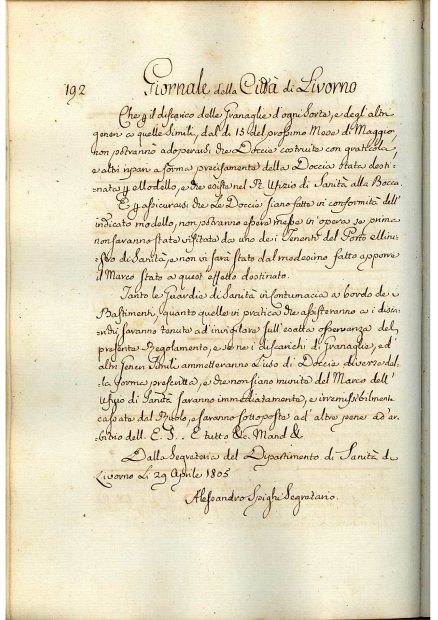 192 Giornale della Città di Livorno
Che p il discarico delle Granaglie d'ogni sorte, e degli altri
generi a quelle simili, dal dì 15 del prossimo Mese di Maggio
non potranno adoperarsi che Doccie costruite con graticola,
e altri ripari a forma precisamente della Doccia stata desti-
nata p Modello, e che esiste nel R. Ufizio di Sanità alla Bocca.
E p assicurarsi che le Doccie siano fatte in conformità dell'
indicato modello, non potranno essere messe in opera se prima
non saranno state visitate da uno dei Tenenti del Porto e Mini-
stro di Sanità, e non vi sarà stato dal medesimo fatto apporre
il Marco stato a quest' effetto destinato.
Tanto le Guardie di Sanità in contumacia a bordo de i
Bastimenti, quanto quelle in pratica che assisteranno a i disca-
richi saranno tenute ad invigilare sull' esatta osservanza del
presente Regolamento, e se ne i discarichi di Granaglie, ed
altri Generi simili ammetteranno l'uso di Doccie diverse dal-
la forma prescritta, e che non siano munite del Marco dell'
Ufizio di Sanità saranno immediatamente, e irremissibilmente
cassate dal Ruolo, e saranno sottoposte ad' altre pene ad' ar-
bitrio dell. E. S.. E tutto &c. Mand &
Dalla Segreteria del Dipartimento di Sanità di
Livorno Li 29 Aprile 1805
Alessandro Spighi Segretario.